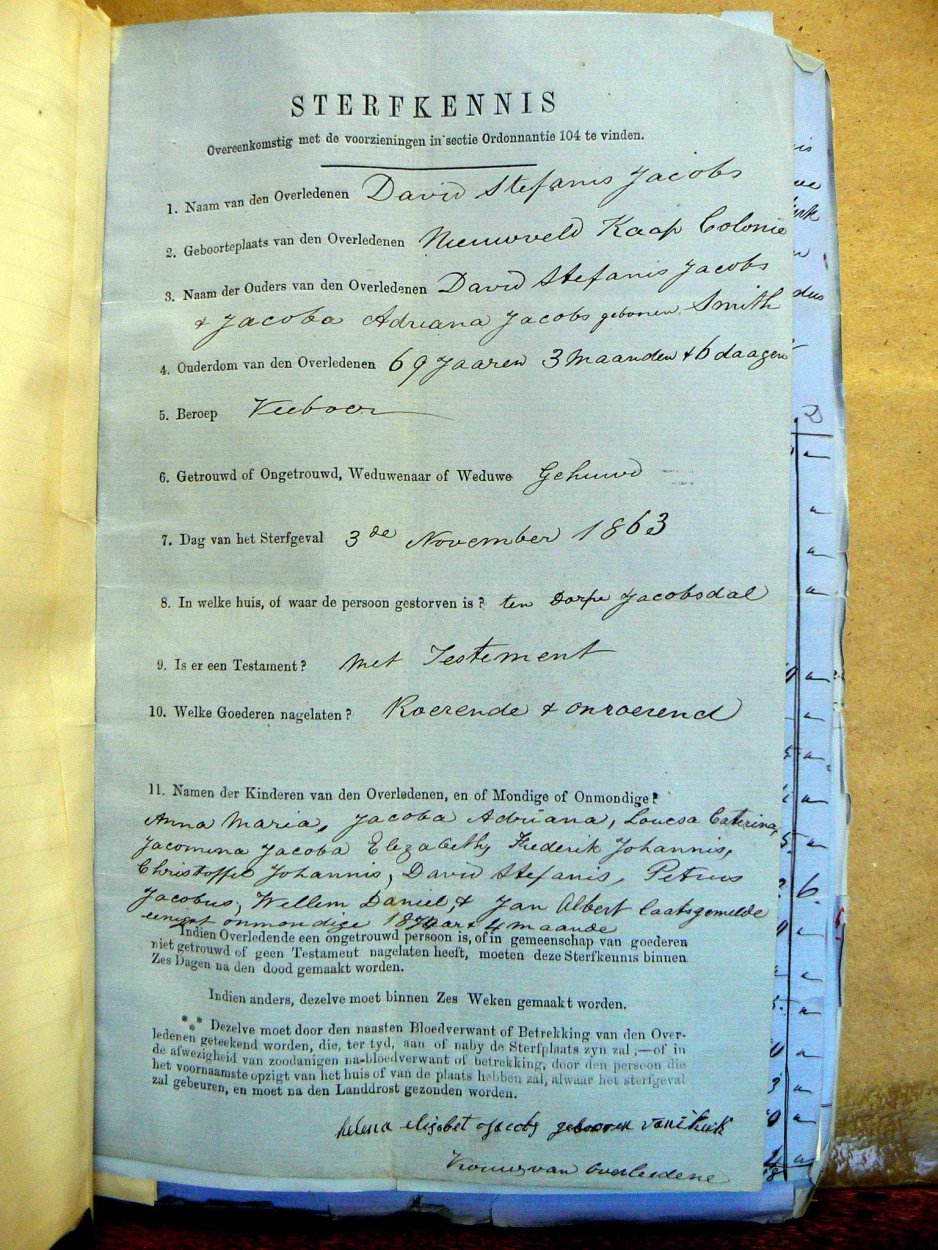 STERFKENNIS
Overeenkomstig met de voorzieningen in sectie Ordonnantie 104 te vinden.
1. Naam van den Overledenen David Stefanis Jacobs
2. Geboorteplaats van den Overledenen Nieuwveld Kaap Colonie
3. Naam der Ouders van den Overledenen David Stefanis Jacobs
& Jacoba Adriana Jacobs geboren Smith
4. Ouderdom van den Overledenen 69 Jaaren 3 Maanden & 6 daagen
5. Beroep Veeboer
6. Getrouwd of Ongetrouwd, Weduwenaar of Weduwe Gehuwd
7. Dag van het Sterfgeval 3de November 1863
8. In welke huis, of waar de persoon gestorven is? ten Dorpe Jacobsdal
9. Is er een Testament? Met Testement
10. Welke Goederen nagelaten? Roerende & onroerend
11. Namen der Kinderen van den Overledenen, en of Mondige of Onmondige?
Anna Maria, Jacoba Adriana, Louesa Caterina,
Jacomina Jacoba Elezabeth, Frederik Johannis,
Christoffel Johannis, David Stefanis, Petrus
Jacobus, Willem Daniel & Jan Albert laatsgemelde
onmondige & 4 maande
Indien Overledende een ongetrouwd persoon is, of in gemeenschap van goederen
niet getrouwd of geen Testament nagelaten heeft, moeten deze Sterfkennis binnen
Zes Dagen na den dood gemaakt worden.
Indien anders, dezelve moet binnen Zes Weken gemaakt worden.
*** Dezelve moet door den naasten Bloedverwant of Betrekking van den Over-
ledenen geteekend worden, die, ter tyd, aan of naby de Sterfplaats zyn zal;—of in
de afwezigheid van zoodanigen na-bloedverwant of betrekking, door den persoon die
het voornaamste opzigt van het huis of van de plaats hebben zal, alwaar het sterfgeval
zal gebeuren, en moet na den Landdrost gezonden worden.
helena elisabet Jacobs geboren
Vrouw van Overleedene